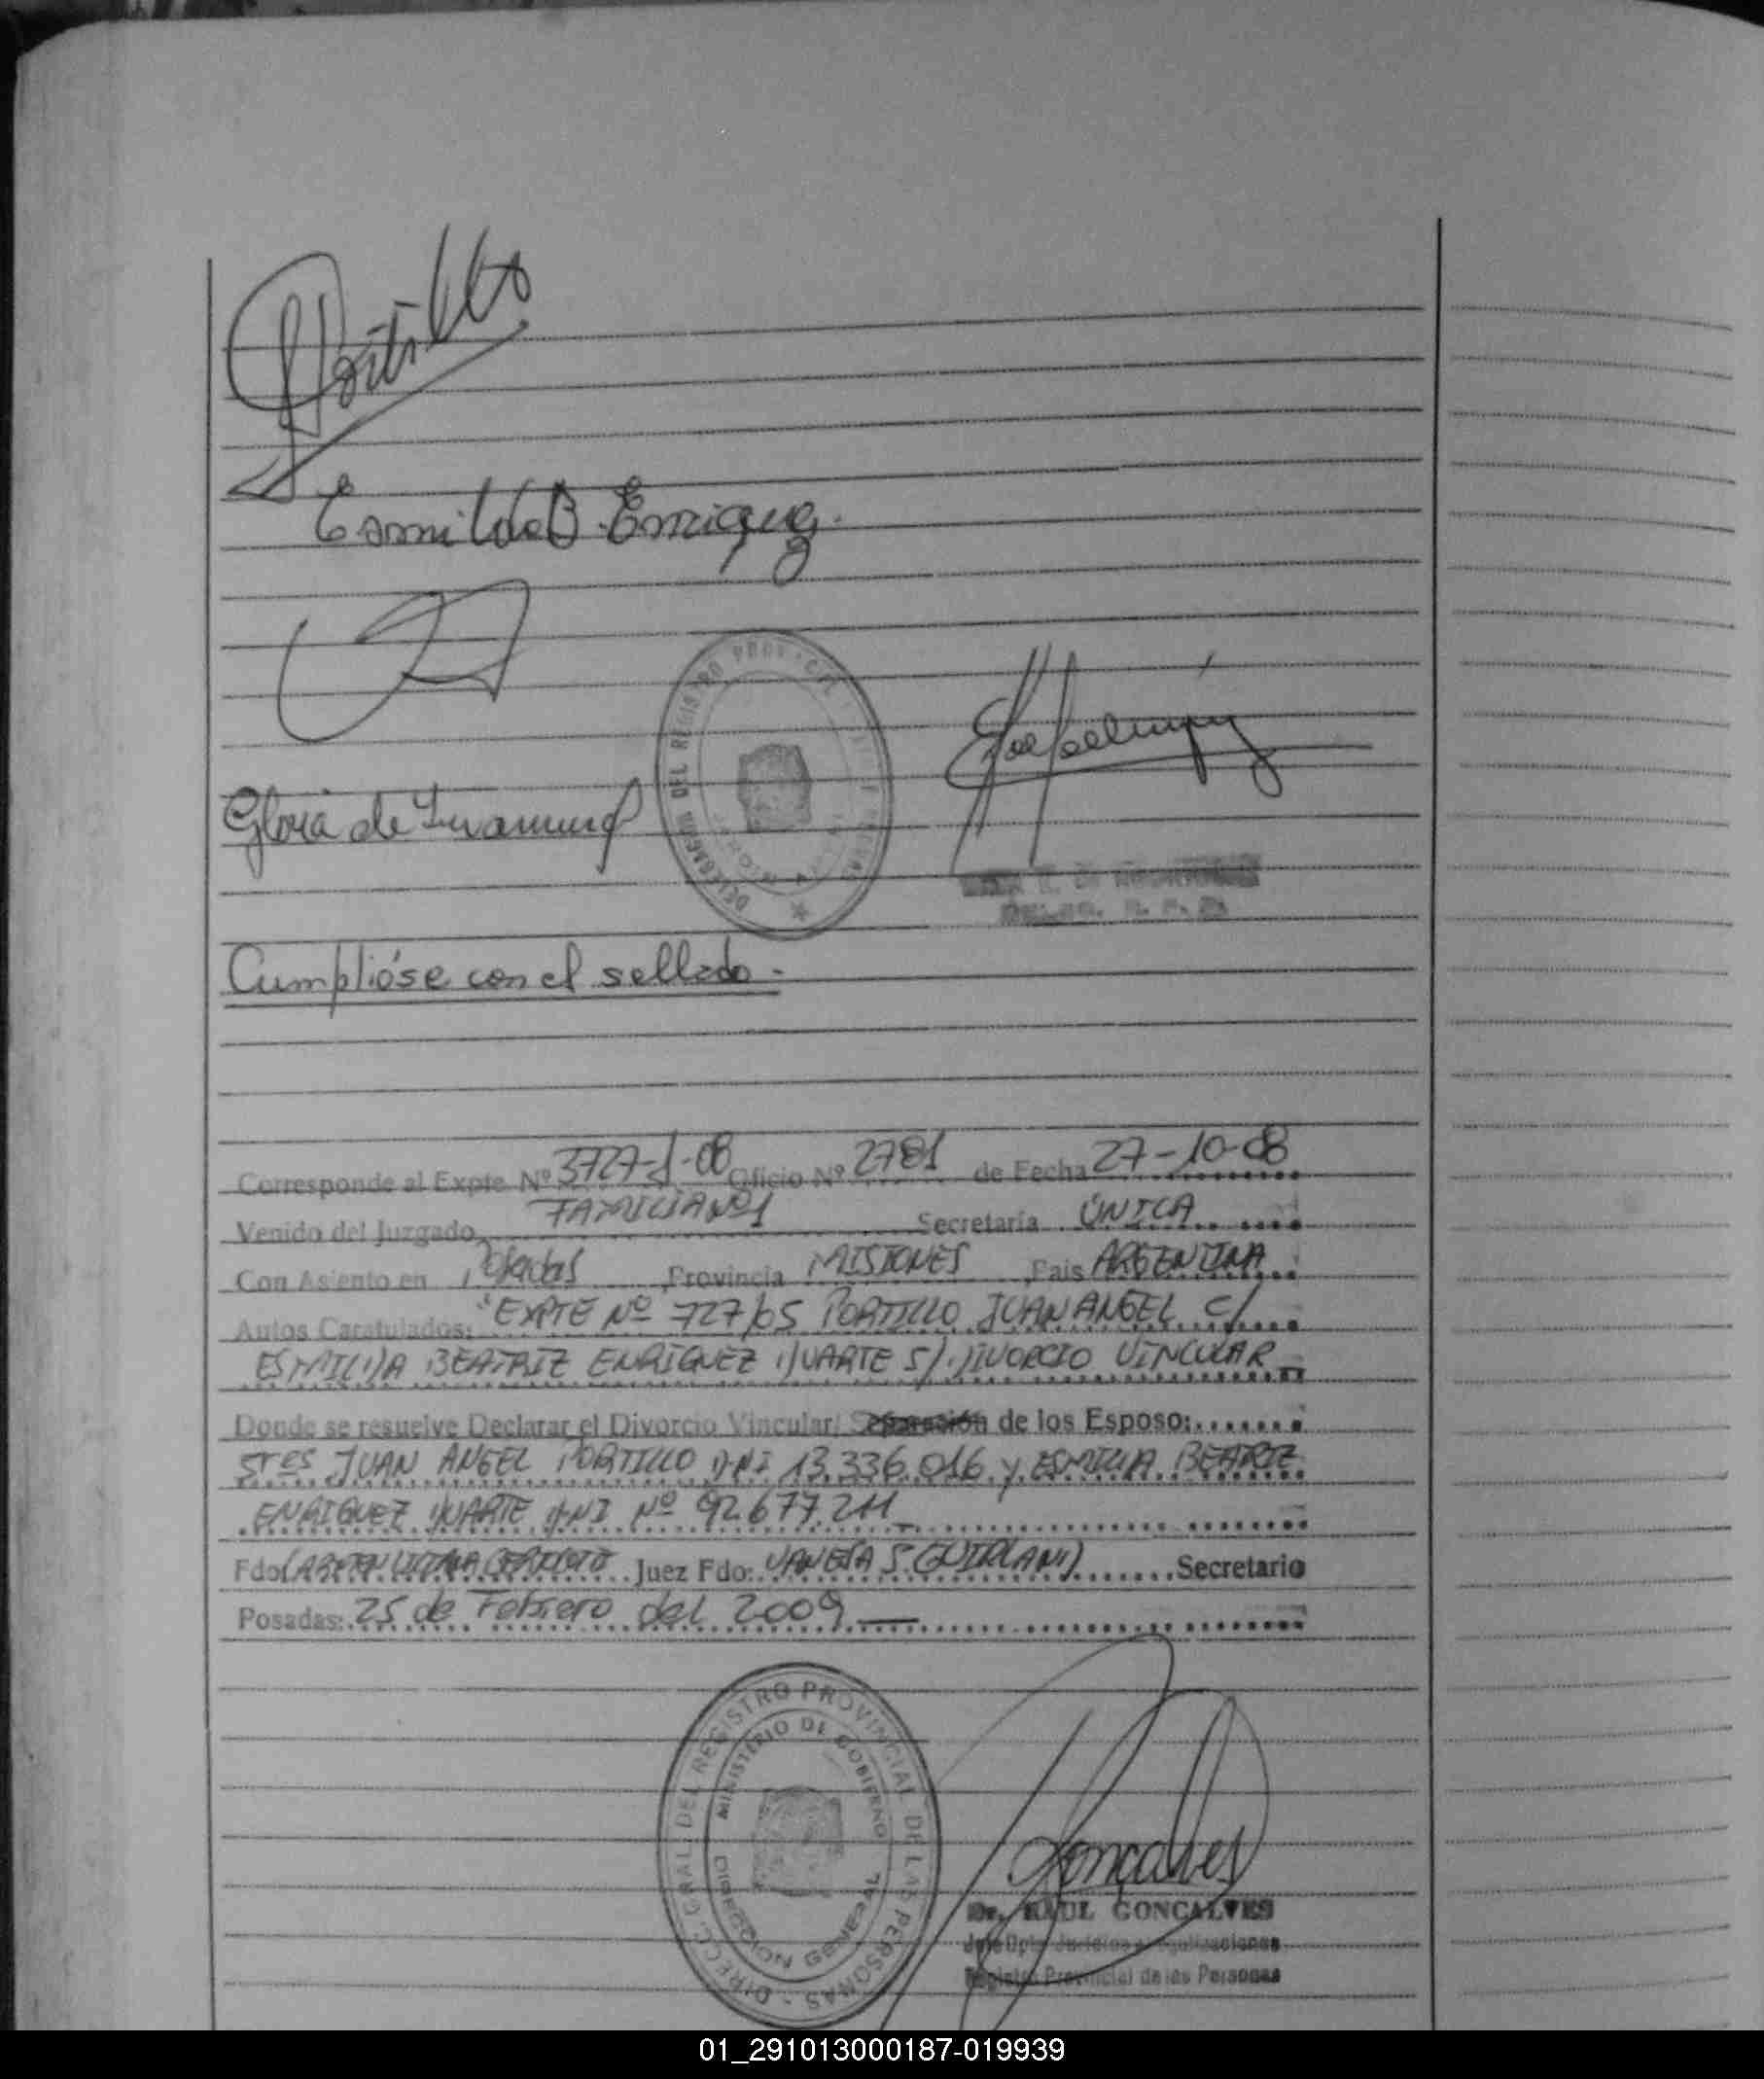 Portillo
Esmilda B. Enriquez.
Gloria de
DELEGACION DEL REGISTRO PROV.
Cumplióse con el sellado.-
Corresponde al Expte Nº 3727-J-08 Oficio Nº 2781 de Fecha 27-10-08
Venido del Juzgado FAMILIA Nº1 Secretaría ÚNICA
Con Asiento en Posadas Provincia MISIONES País ARGENTINA
Autos Caratulados: "EXPTE Nº 727/05 PORTILLO JUAN ANGEL c/
ESMILDA BEATRIZ ENRIQUEZ DUARTE S/ DIVORCIO VINCULAR
Donde se resuelve Declarar el Divorcio Vincular/ Separación de los Esposo:
Sres JUAN ANGEL PORTILLO DNI 13.336.016 y ESMILDA BEATRIZ
ENRIQUEZ DUARTE DNI Nº 92.677.211
Fdo: Juez Fdo: VANESA S. Secretario
Posadas: 25 de Febrero del 2009
DIRECC. GRAL. DEL REGISTRO PROVINCIAL DE LAS PERSONAS -
MINISTERIO DE GOBIERNO
DIRECCION GENERAL
Goncalves
Dr. RAUL GONCALVES
Registro Provincial de las Personas
01_291013000187-019939